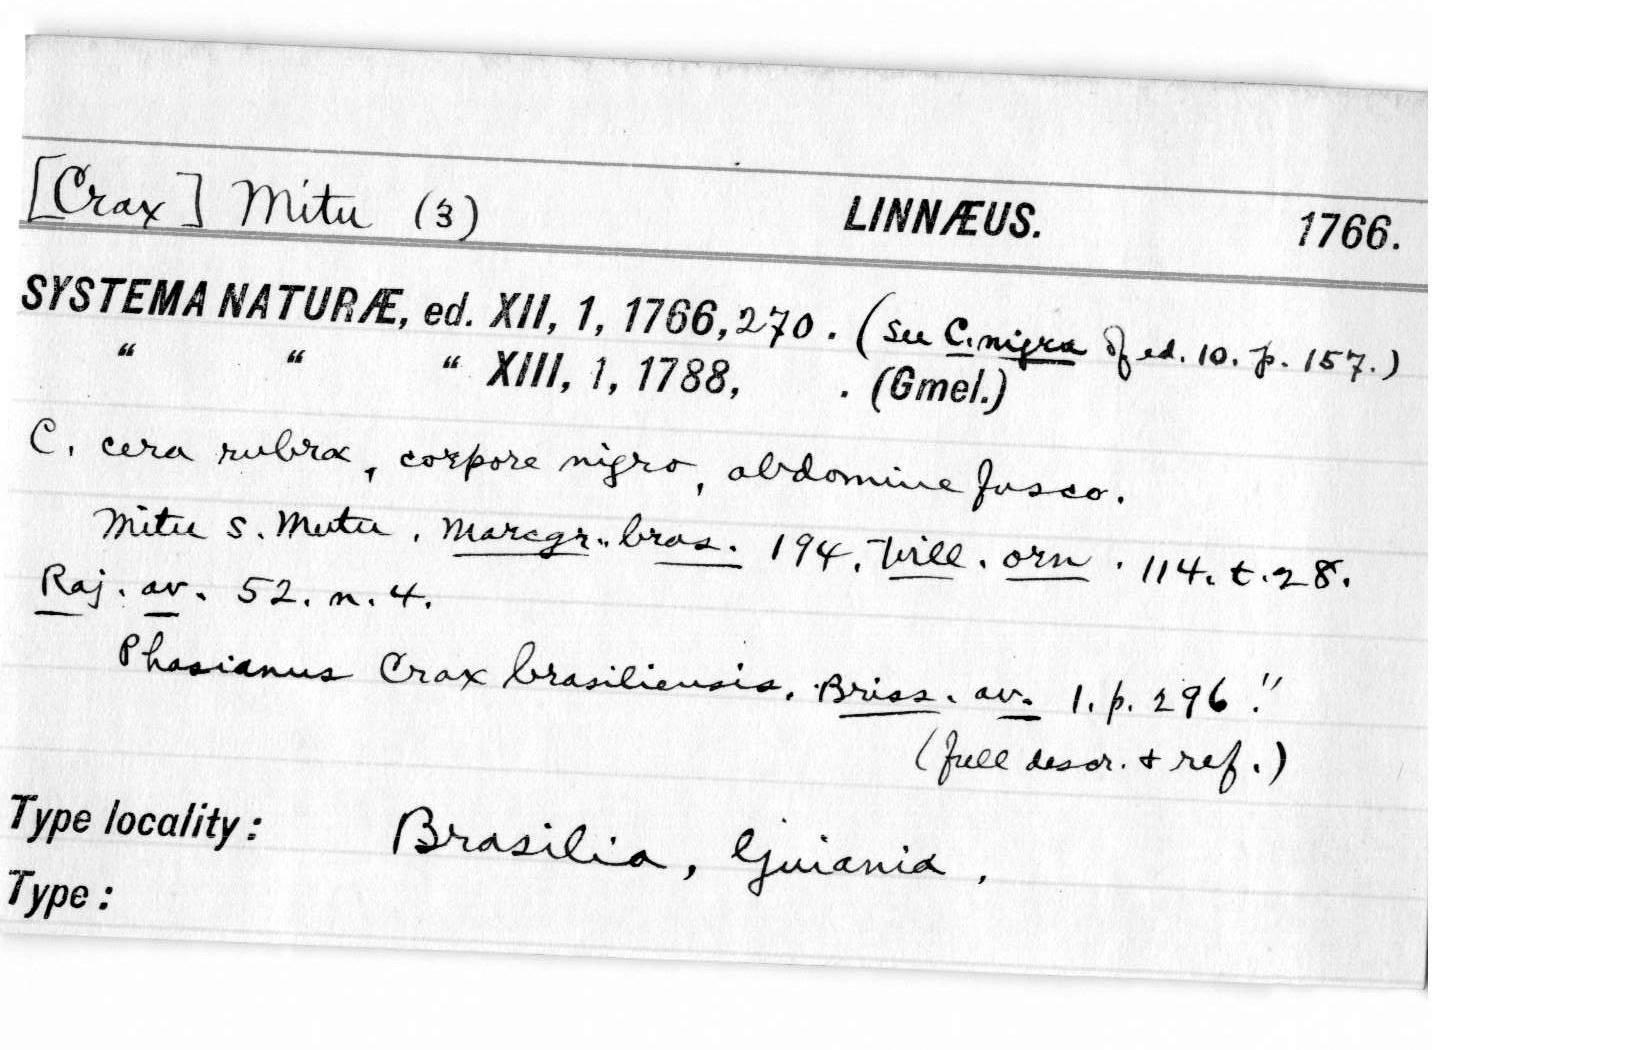 [Crax] Mitu (3) LINNÆUS. 1766.
SYSTEMA NATURÆ, ed. XII, 1, 1766, 270. (See C. nigra of ed. 10. p. 157.)
“ “ “ XIII, 1, 1788, . (Gmel.)
C. cera rubra, corpore nigro, abdomine fusco.
Mitu s. Mutu. Marcgr. bras. 194. Will. orn. 114. t. 28.
Raj. av. 52. n. 4.
Phasianus Crax brasiliensis. Briss. av. 1. p. 296."
(full descr. + ref.)
Type locality: Brasilia, Guiania.
Type: